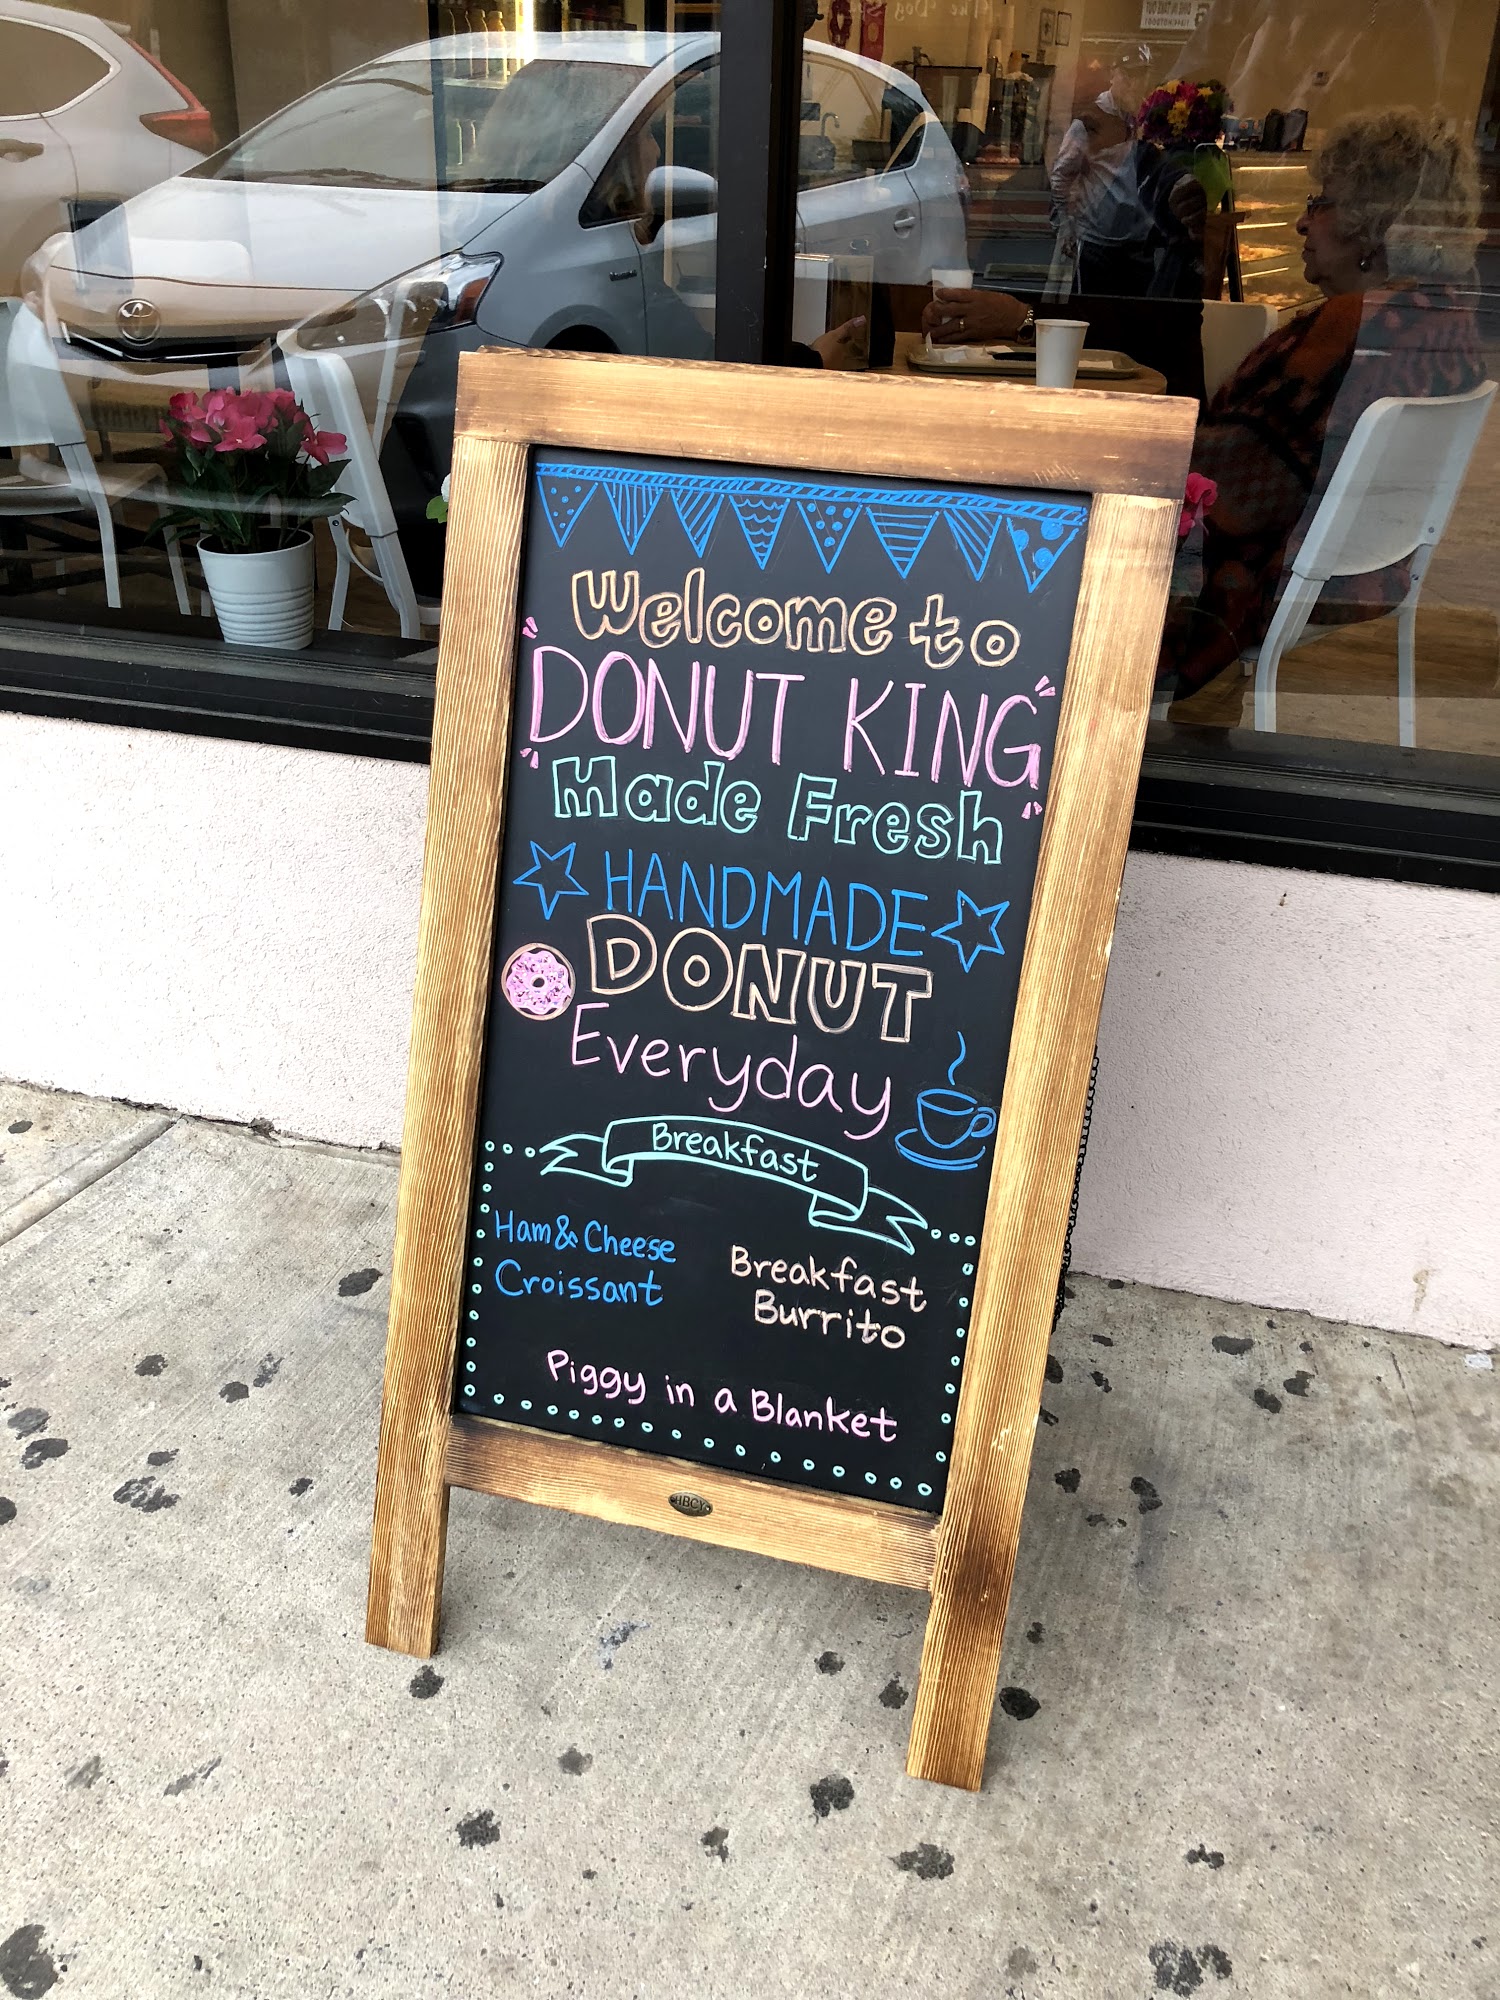 Welcome to
DONUT KING
Made Fresh
HANDMADE
DONUT
Everyday
Breakfast
Ham & Cheese
Croissant
Breakfast
Burrito
Piggy in a Blanket
HBCY